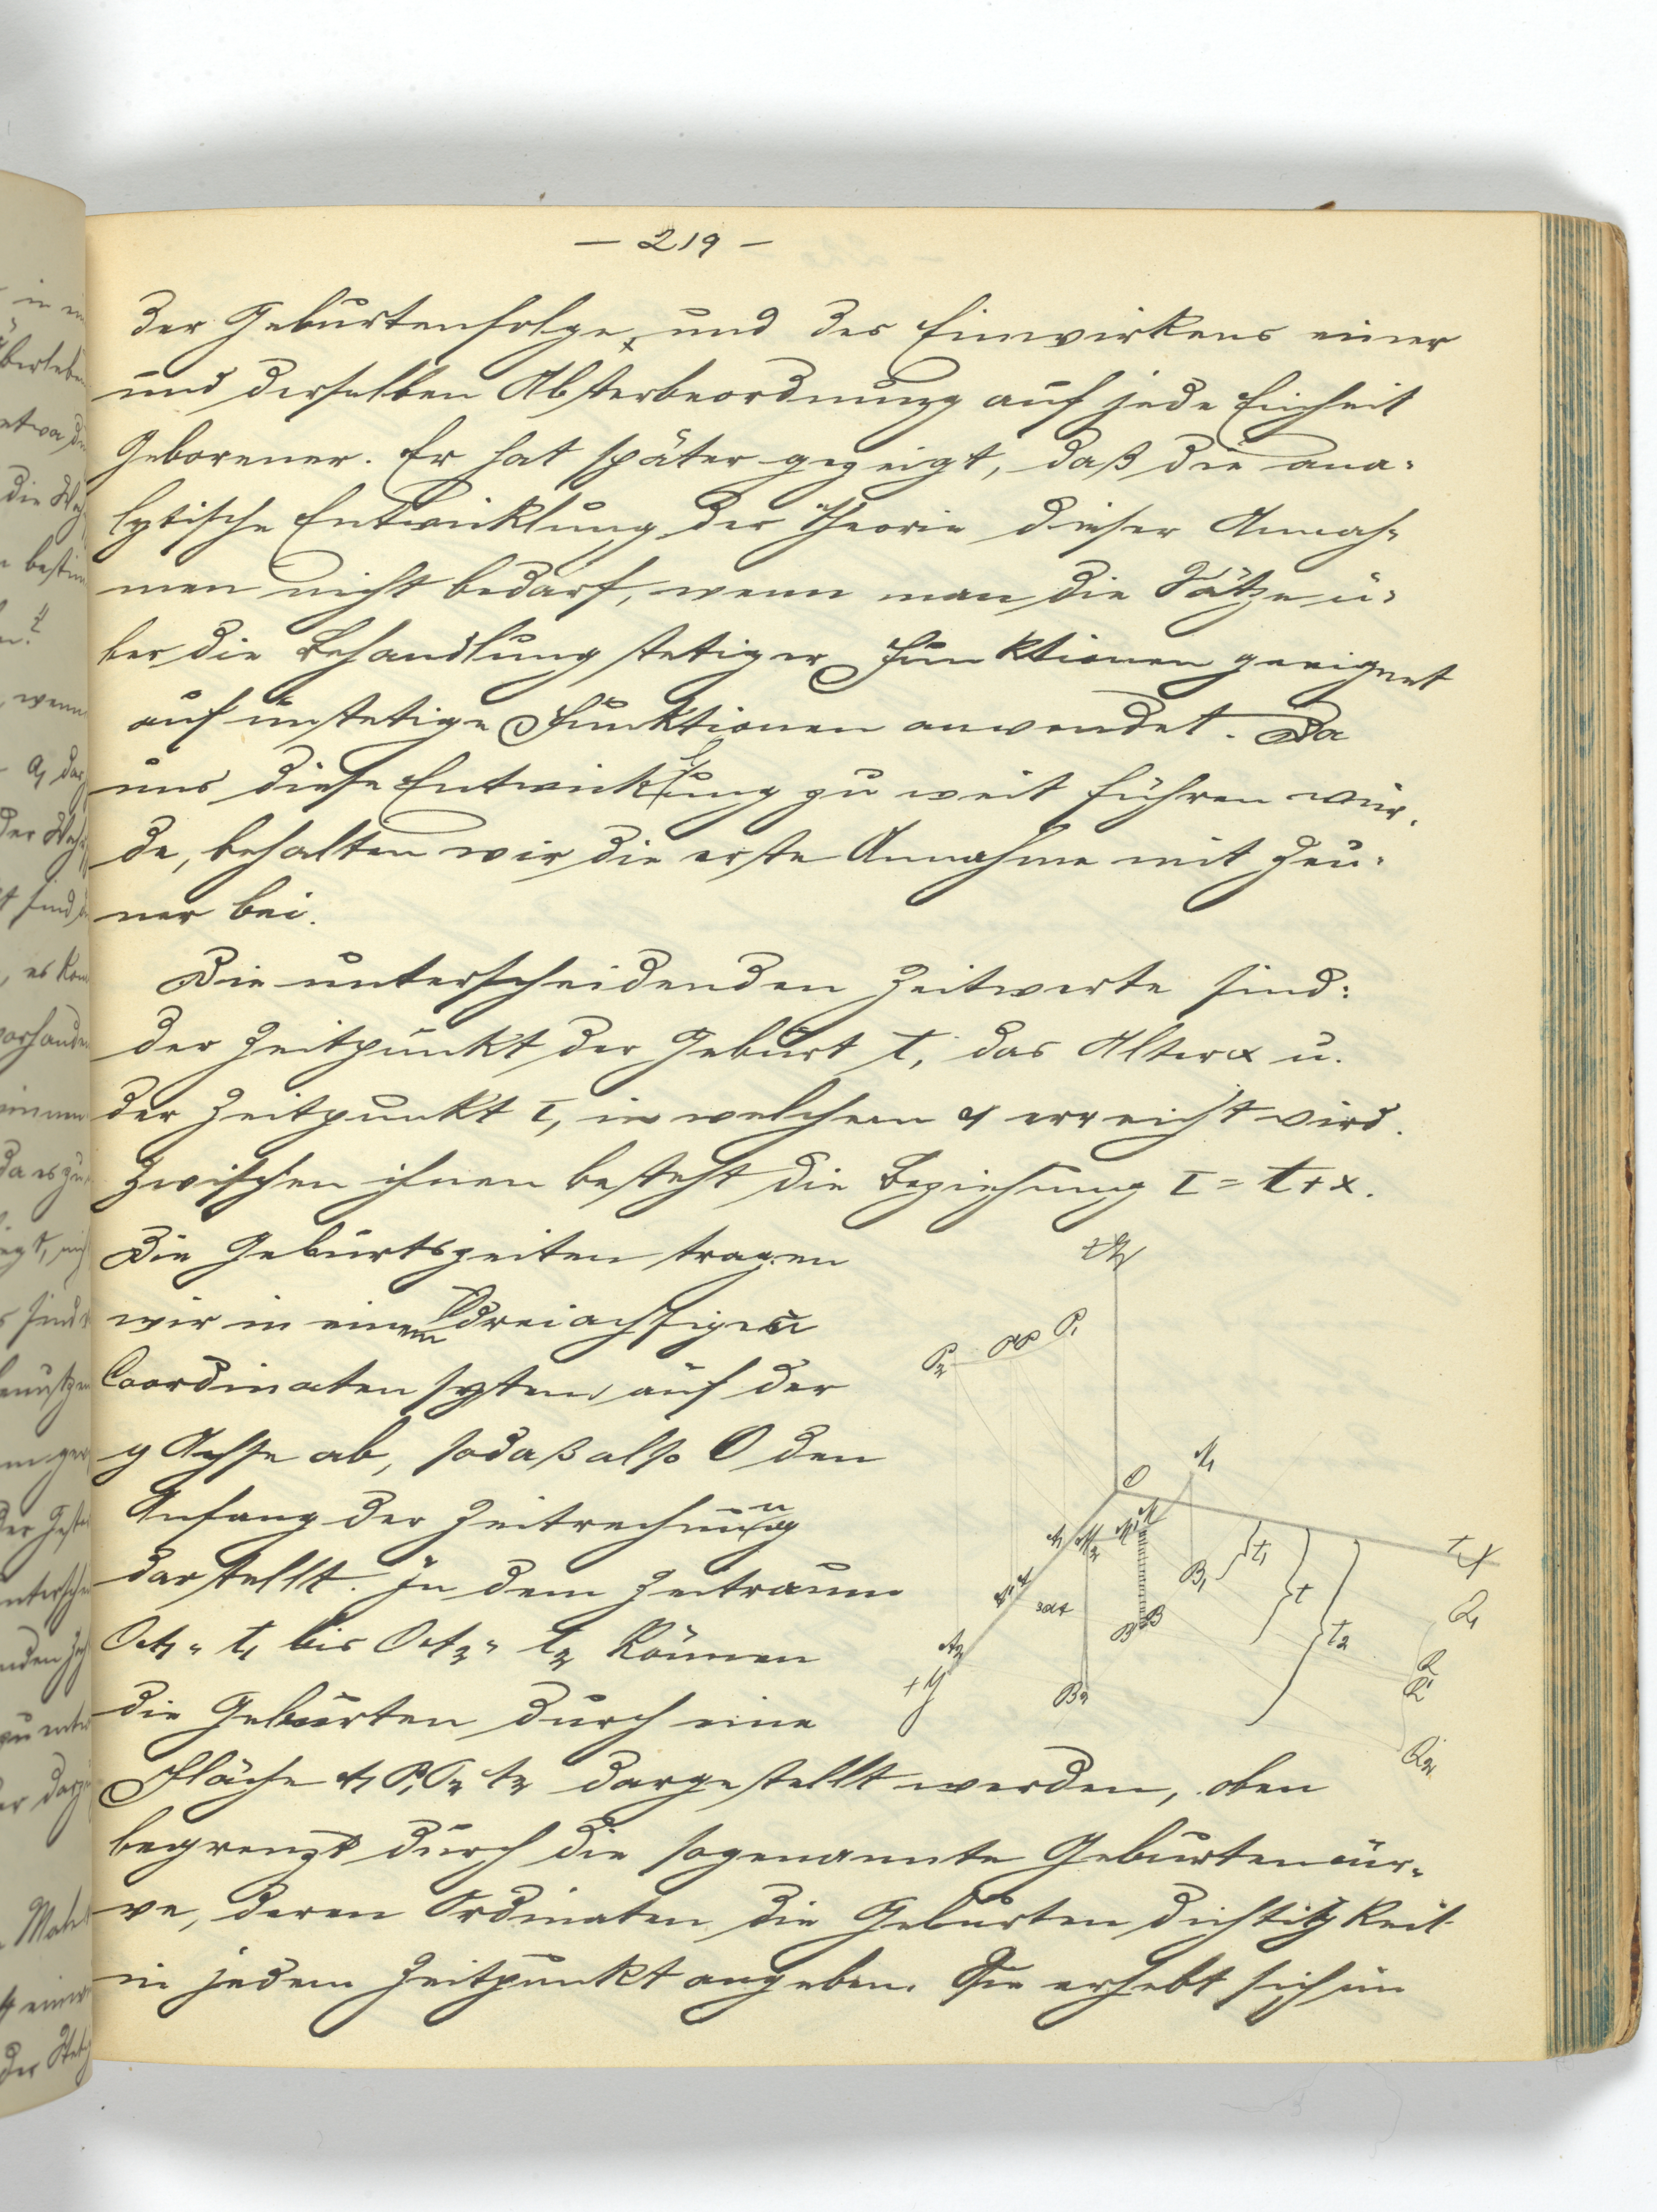 — 219 —
der Geburtenfolge, und des Einwirkens einer
und derselben Absterbeordnung auf jede Einheit
Geborener. Er hat später gezeigt, daß die ana-
lytische Entwicklung der Theorie dieser Annah-
men nicht bedarf, wenn man die Sätze ü-
ber die Behandlung stetiger Funktionen geeignet
auf unstetige Funktionen anwendet. Da
uns diese Entwicklung zu weit führen wür-
de, behalten wir die erste Annahme mit Zeu-
ner bei.
Die unterscheidenden Zeitwerte sind:
der Zeitpunkt der Geburt t, das Alter x u.
der Zeitpunkt τ, in welchem x erreicht wird.
Zwischen ihnen besteht die Beziehung τ = t + x.
Die Geburtszeiten tragen
wir in einem dreiachsigen
Coordinatensystem auf der
y Achse ab, sodaß also O den
Anfang der Zeitrechnung
darstellt. In dem Zeitraum
OA₁ = t₁ bis OA₂ = t₂ können
die Geburten durch eine
Fläche A₁ P₁ P₂ A₂ dargestellt werden, oben
begrenzt durch die sogenannte Geburtencur-
ve, deren Ordinaten die Geburtendichtigkeit
in jedem Zeitpunkt angeben. Sie erhebt sich im
+Z
P₂ P' P P₁
O
M₁
A₁ M₂ M' M
+X
B₁
t₁
t
t₂
Q₁
A' A
B' B
A₂
+Y
B₂
Q
Q'
Q₂